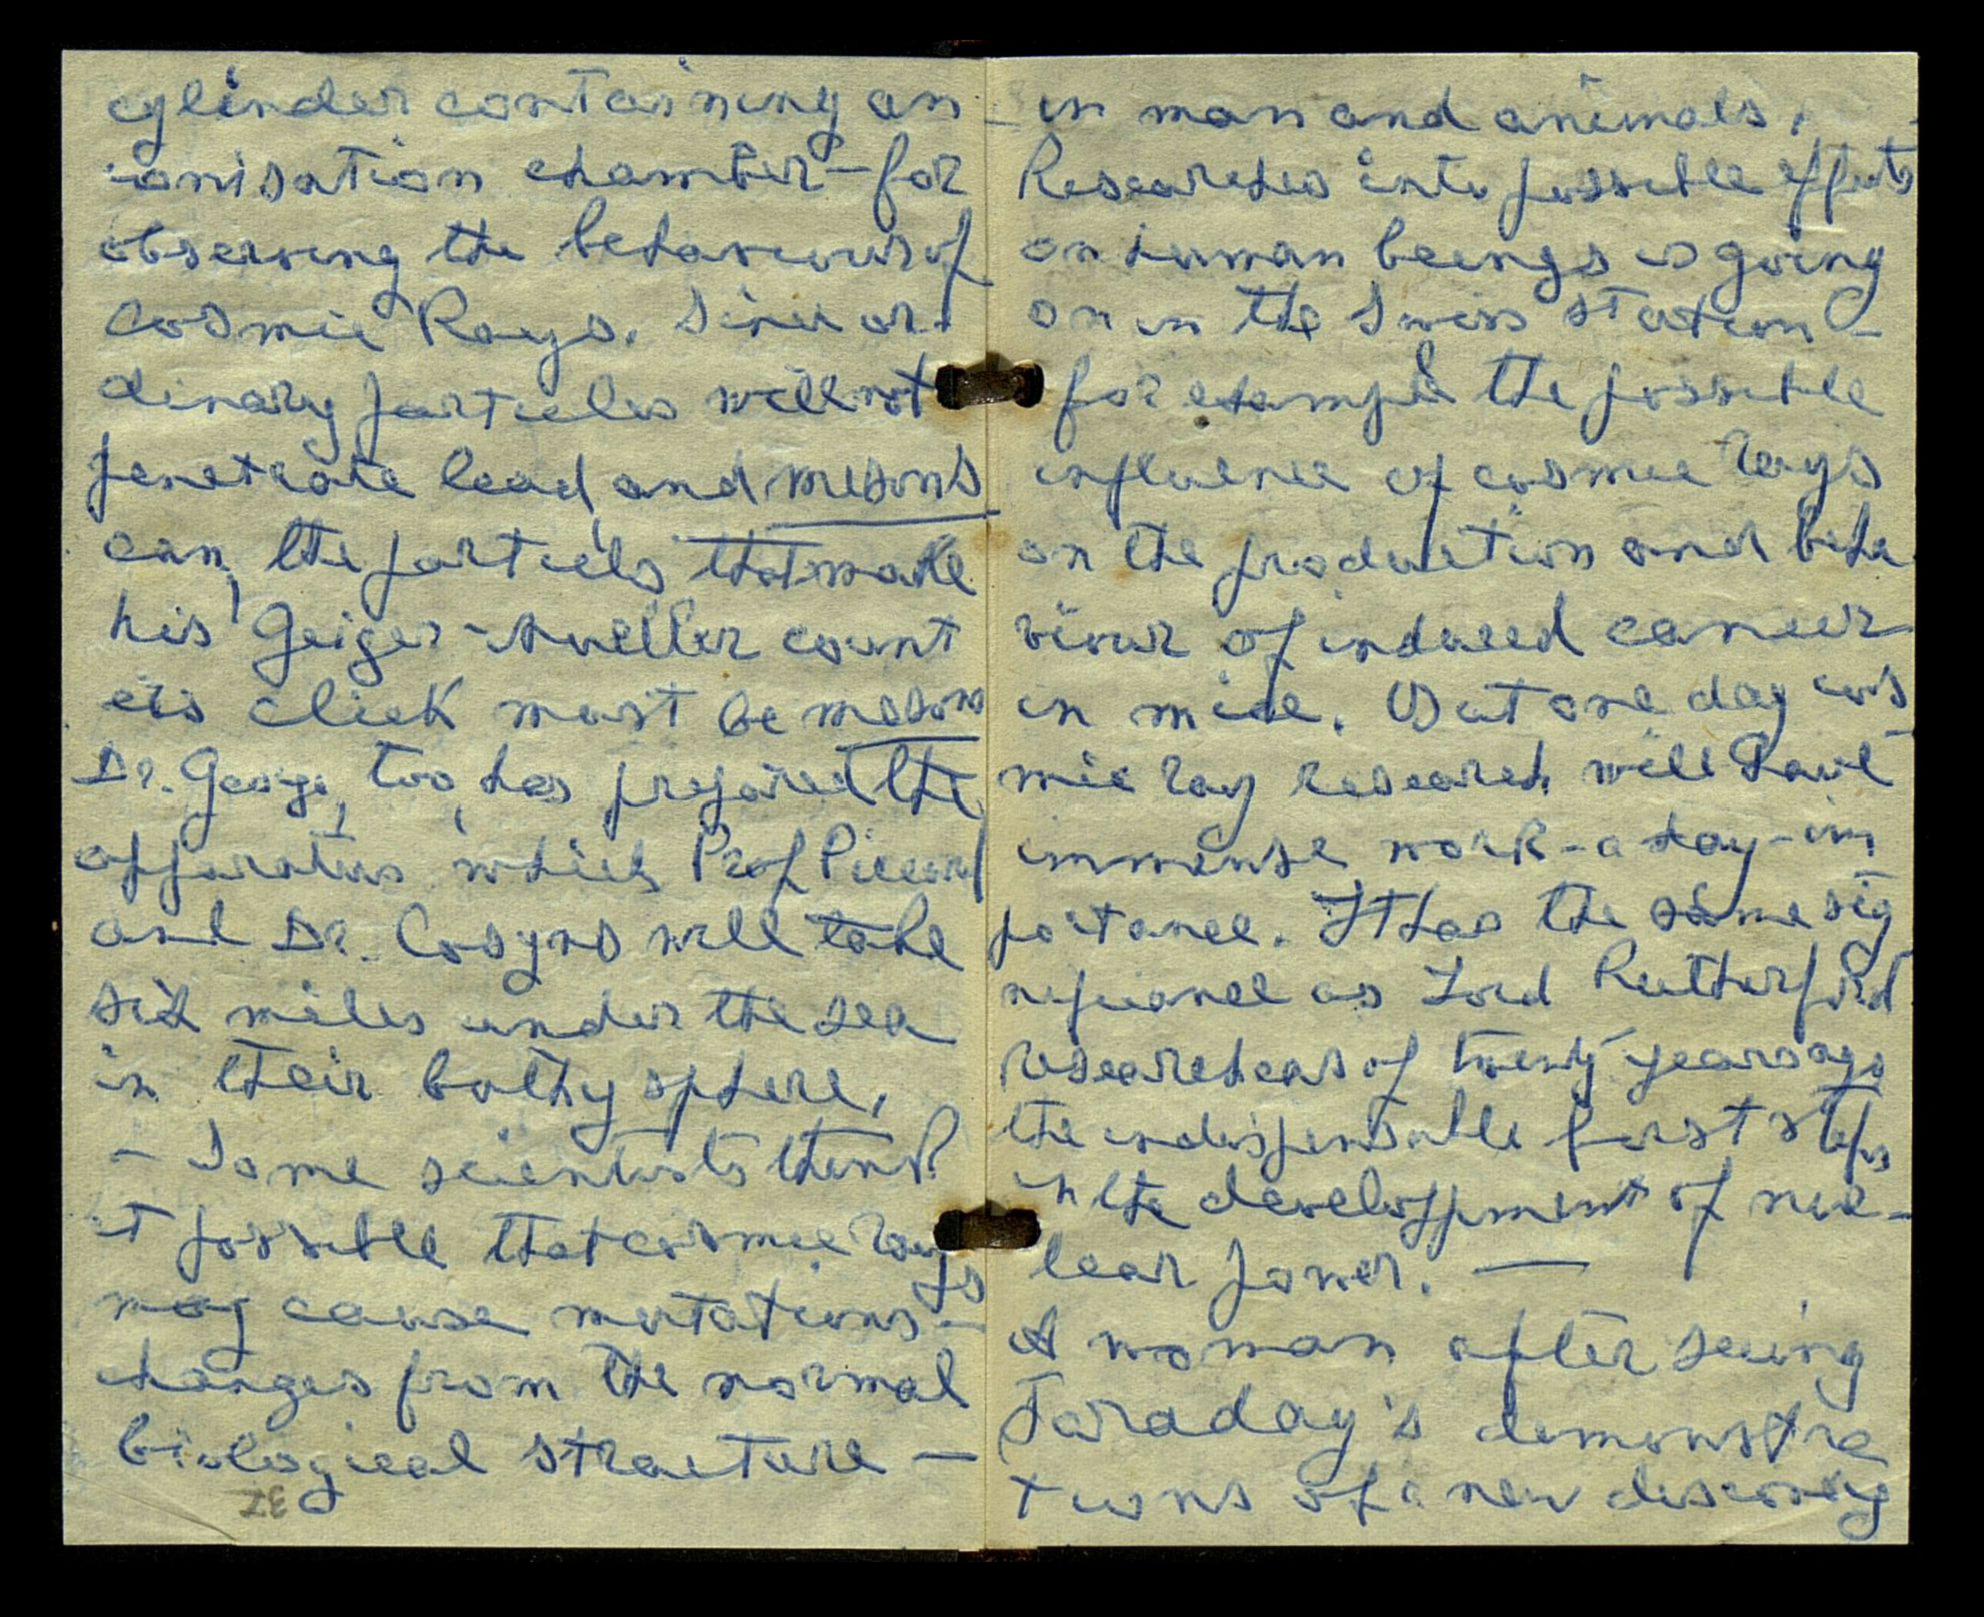 cylinder containing an
ionisation chamber - for
observing the behaviour of
Cosmic Rays. Since or-
dinary particles will not
penetrate lead, and mesons
can, the particles that make
his Geiger-Mueller count
ers click must be mesons
Dr. George, too, has prepared the
apparatus which Prof Piccard
and Dr. Cosyns will take
six miles under the sea
in their bathysphere.
- Some scientists think
it possible that cosmic rays
may cause mutations -
changes from the normal
biological structure -
37
in man and animals.
Researches into possible effects
on human beings is going
on in the Swiss station -
for example the possible
influence of cosmic rays
on the production and beha
viour of induced cancer
in mice. But one day cos
mic ray research will have
immense work-a day-im
portance. It has the same sig
nificance as Lord Rutherford
researches of twenty years ago
the indispensable first steps
in the developpment of nuc-
lear power. —
A woman after seeing
Faraday's demonstra
tions of a new discovery